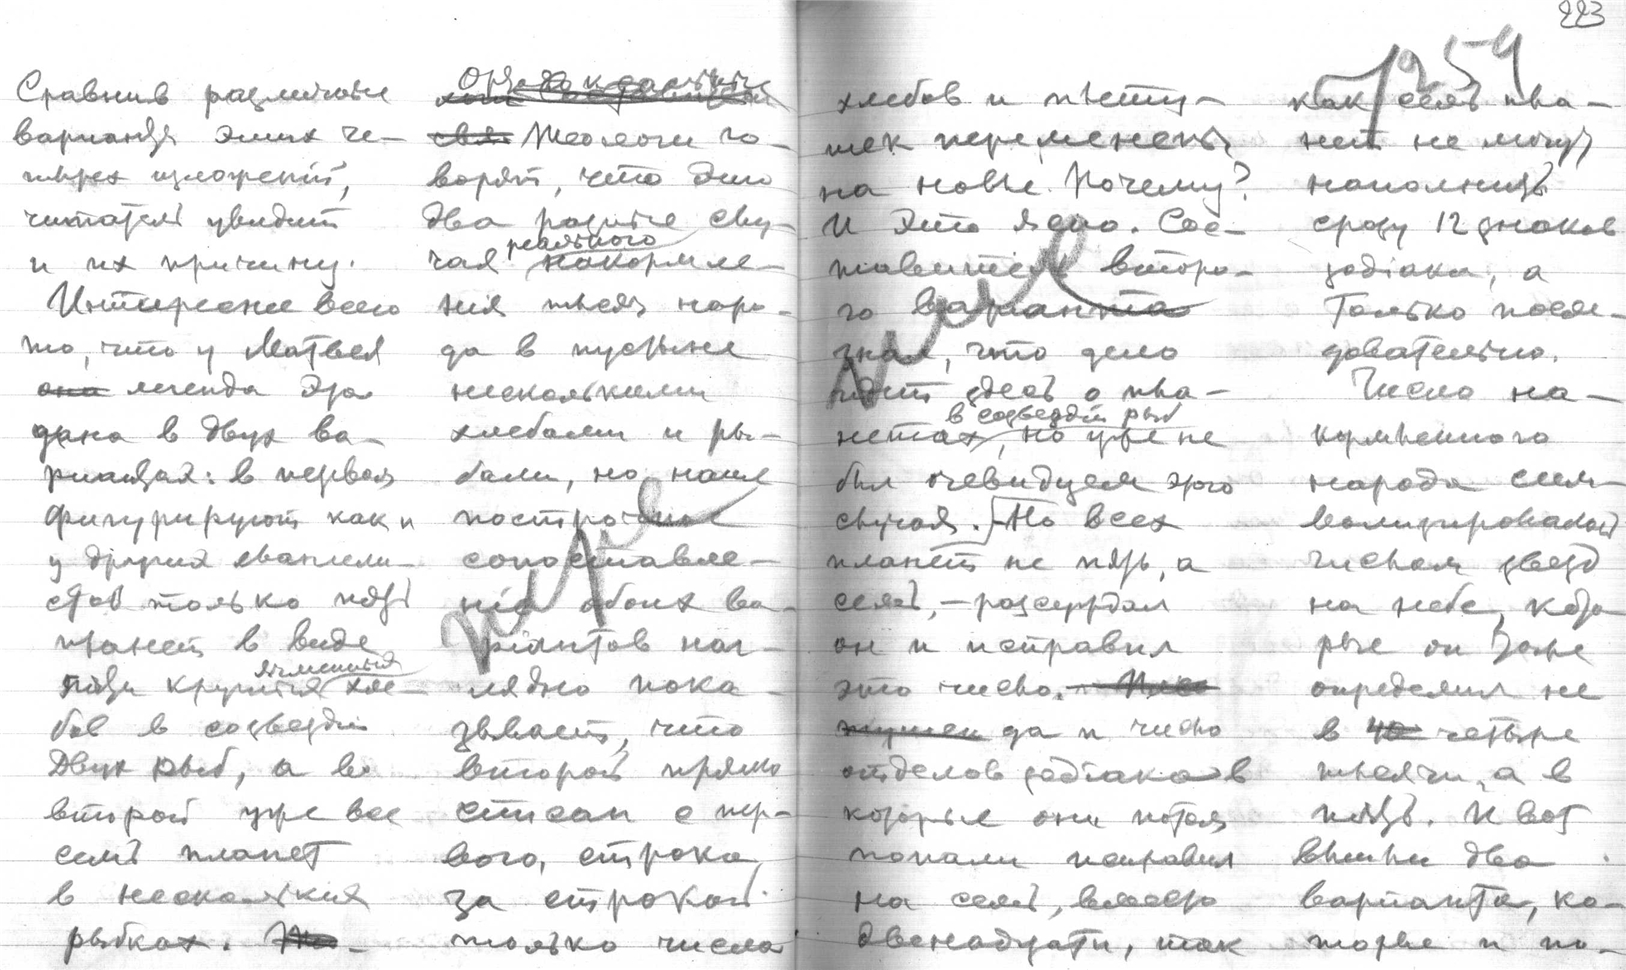 223
7254
Сравнив различные
варианты этих че-
тырех изложений,
читатель увидит
и их причину.
Интереснее всего
то, что у Матвея
она легенда эта
дана в двух ва-
риантах: в первом
фигурируют как и
у других евангели-
стов только пять
планет в виде
пяти круглых хле-
ячменных
бов в созвездии
Двух рыб, а во
второй уже все
семь планет
в нескольких
рыбках. Но
Ортодоксальные
Теологи го-
ворят, что это
два разные слу-
чая накормле-
реального
ния тысяч наро-
да в пустыне
несколькими
хлебами и ры-
бами, но наше
построчное
сопоставле-
ние обоих ва-
риантов наг-
лядно пока-
зывает, что
второй прямо
списан с пер-
вого, строка
за строкой.
только числа
хлебов и тысту-
шек переменены
на новые. Почему?
И это ясно. Сос-
тавитель второ-
го варианта
знал, что дело
идет здесь о пла-
нетах, но уже не
в созвездии рыб
был очевидцем этого
случая. Но всех
планет не пять, а
семь, — рассуждал
он и исправил
это число.
да и число
отделов зодиака в
которые они потом
попали исправил
на семь, вместо
двенадцати, так
как семь пла-
нет не могут
наполнить
сразу 12 знаков
зодиака, а
только после-
довательно.
Число на-
кормленного
народа сим-
волизировалось
числом звезд
на небе, кото-
рые он тоже
определил не
в 40 четыре
тысячи, а в
пять. И вот
вышли два
варианта, ко-
торые и по-